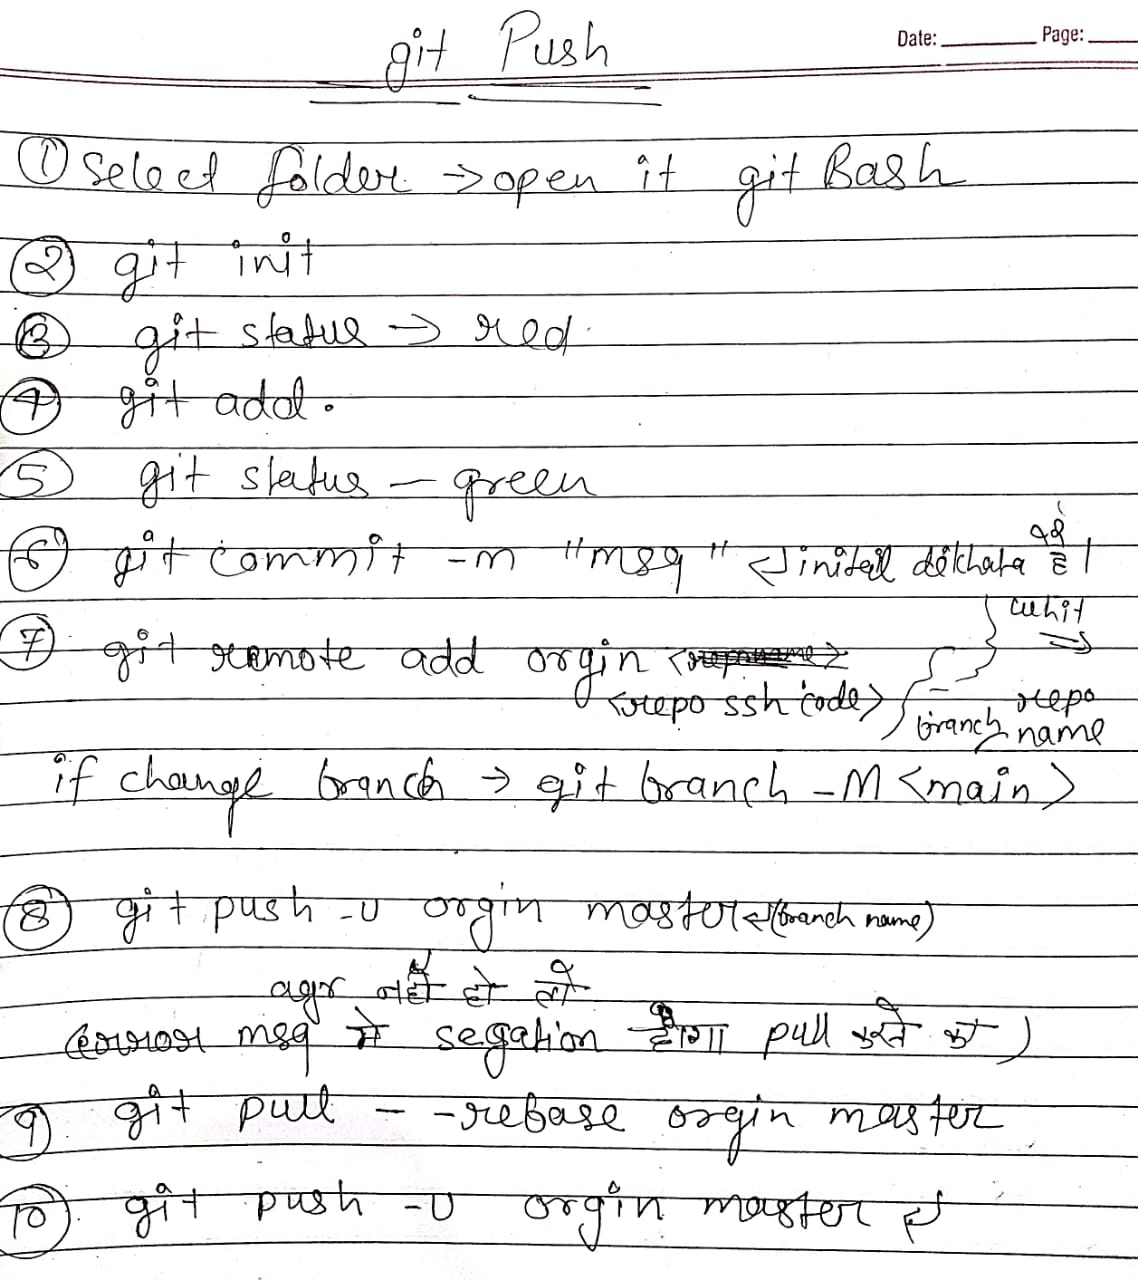 git Push
Date: Page:
① Select folder → open it git Bash
② git init
③ git status → red.
④ git add .
⑤ git status – green
⑥ git commit -m "msg" initail dekhata है।
⑦ git remote add orgin
<repo ssh code>
branch
repo
name
if change branch → git branch -M <main>
⑧ git push -u orgin master (branch name)
अगर नही हो तो
(error msg मे segation होगा pull करने का)
⑨ git pull --rebase orgin master
⑩ git push -u orgin master